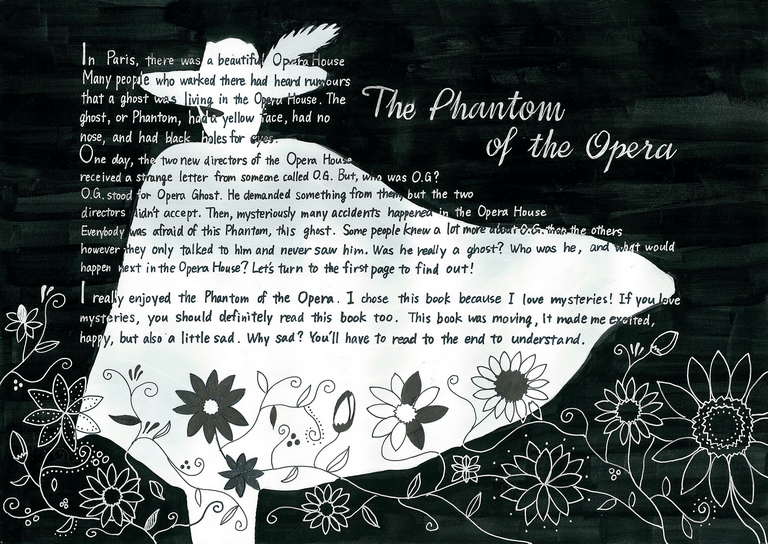 The Phantom
of the Opera
In Paris, there was a beautiful Opera House
Many people who warked there had heard rumours
that a ghost was living in the Opera House. The
ghost, or Phantom, had a yellow face, had no
nose, and had black holes for eyes.
One day, the two new directors of the Opera House
received a strange letter from someone called O.G. But, who was O.G?
O.G. stood for Opera Ghost. He demanded something from them, but the two
directors didn't accept. Then, mysteriously many accidents happened in the Opera House
Everybody was afraid of this Phantom, this ghost. Some people knew a lot more about O.G. than the others
however they only talked to him and never saw him. Was he really a ghost? Who was he, and what would
happen next in the Opera House? Let's turn to the first page to find out!
I really enjoyed the Phantom of the Opera. I chose this book because I love mysteries! If you love
mysteries, you should definitely read this book too. This book was moving, It made me excited,
happy, but also a little sad. Why sad? You'll have to read to the end to understand.